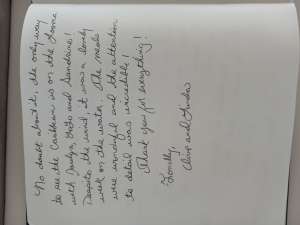 No doubt about it, the only way
to see the Caribbean is on the Norma
with Jocelyn, JoJo and Sundance!
Despite the wind, it was a lovely
week on the water. The meals
were wonderful and the attention
to detail was incredible!
Thank you for everything!
Fondly,
and